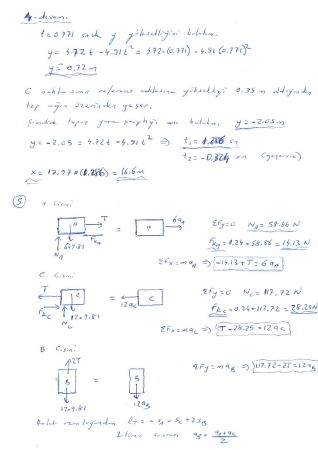 4-devamı
t=0.771 snde y yüksekliğini bulalım.
y = 4.72t - 4.91t² = 4.72×(0.771) - 4.91(0.771)²
y = 0.72 m
C noktasının referans noktasına yüksekliği 0.75 m olduğundan
top ağın üzerinden geçer.
Şimdi topun yere çarptığı anı bulalım. y=-2.05m
y = -2.05 = 4.72t - 4.91t² ⇒ t₁ = 1.286 sn
t₂ = -0.324 sn (geçersiz)
x = 12.97×(1.286) = 16.6m
5 A Cismi
T A = A 6aA
6×9.81 FkA NA
ΣFy=0 NA = 58.86 N
FkA = 0.24×58.86 = 14.13 N
ΣFx=maA ⇒ -14.13+T = 6aA
C Cismi
T C = 12aC C
FkC NC 12×9.81
ΣFy=0 NC = 117.72 N
FkC = 0.24×117.72 = 28.25N
ΣFx=maC ⇒ T-28.25 = 12aC
B Cismi
2T
B = B
12×9.81 12aB
ΣFy=maB ⇒ 117.72-2T=12aB
2. türev
aB = aA+aC / 2